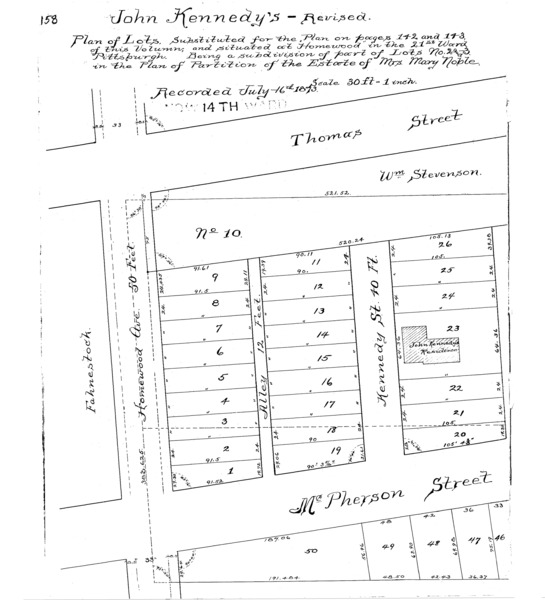 158
John Kennedy's - Revised.
Plan of Lots, Substituted for the Plan on pages 142 and 143
of this Volumn; and situated at Homewood in the 21st Ward
Pittsburgh. Being a subdivision of part of Lots No. 2 & 3
in the Plan of Partition of the Estate of Mrs Mary Noble.
Scale 30 ft = 1 inch.
Recorded July 16th 1873.
NOW 14TH WARD
33
Thomas Street
Wm Stevenson.
521.52
No 10.
520.24
Fahnestock.
Homewood Ave 50 Feet.
91.61
9
91.5
8
7
6
5
4
3
2
91.5
1
91.52
Alley 12 Feet.
90.11
11
90.
12
13
14
15
16
17
18
90
19
Kennedy St 40 Ft.
105.12
26
105.
25
24
23
John Kennedy's
22
21
105.
20
McPherson Street
33
189.06
50
191.484
48
49
48.50
42
48
42.43
36
47
36.37
33
46